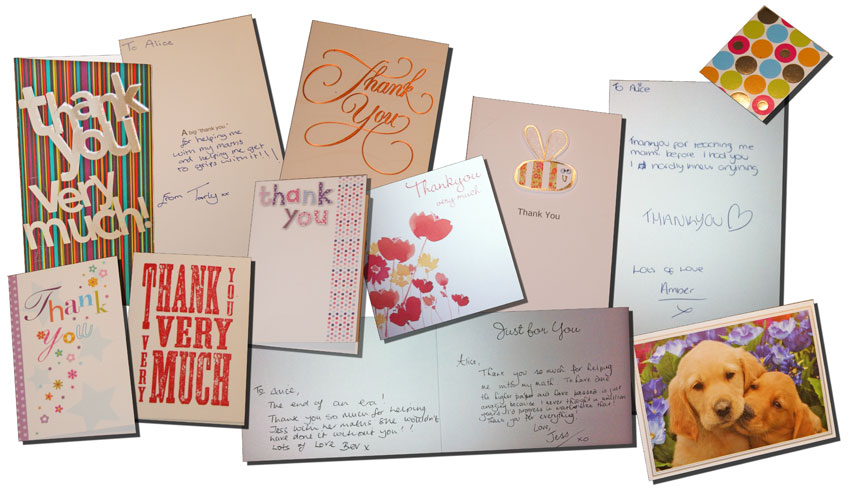 thank
you
very
much!
To Alice
A big "thank you"
for helping me
with my maths
and helping me get
to grips with it!!!
from Tarly xx
Thank
You
thank
you
Thankyou
very much
Thank You
To Alice
Thankyou for teaching me
maths before I had you
I hardly knew anything
THANKYOU
LOTS OF LOVE
Amber
x
Thank
you
THANK
YOU
VERY
VERY
MUCH
To Alice,
The end of an era!
Thank you so much for helping
Jess with her maths she wouldn't
have done it without you!!
Lots of Love Bev x
Just for You
Alice,
Thank you so much for helping
me with my math. To have done
the higher paper and have passed is just
amazing because I never thought in a million
years I'd progress in mathematics that
Thank you for everything!
Love,
Jess xo